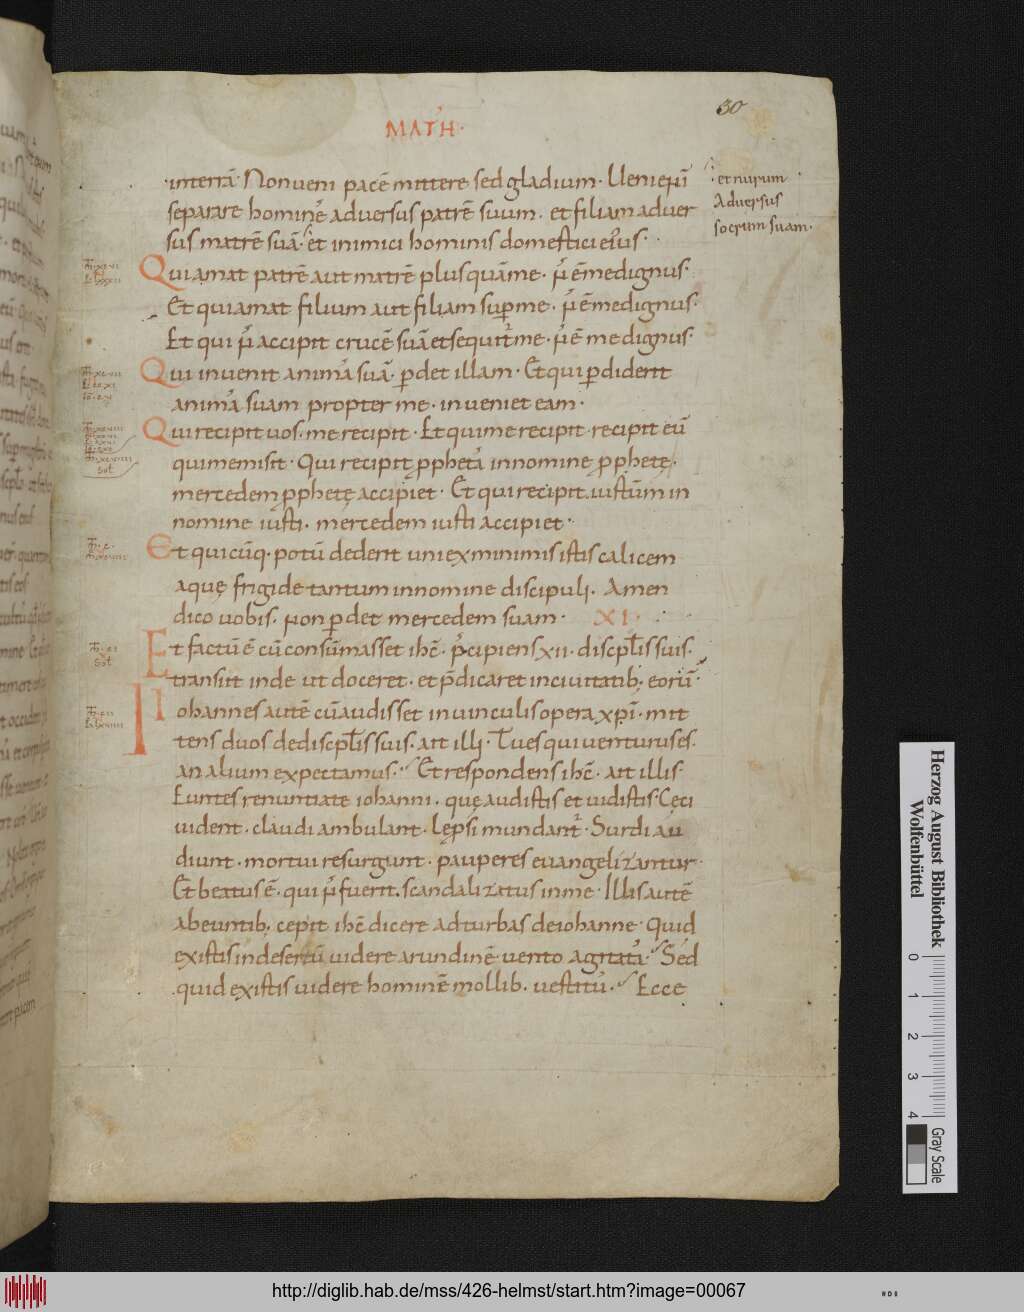 30
MATH·
interrā· Non veni pacē mittere sed gladium· Ueni eni
separare hominē adversus patrē suum· et filiam adver
sus matrē suā· et inimici hominis domestici eius·
et nurum
Adversus
socrum suam·
Qui amat patrē aut matrē plus quā me· n̄ ē me dignus·
Et qui amat filium aut filiam sup me· n̄ ē me dignus·
Et qui n̄ accipit crucē suā et sequit me· n̄ ē me dignus·
Qui invenit animā suā· pdet illam· Et qui pdiderit
animā suam propter me· inveniet eam·
Qui recipit vos· me recipit· Et qui me recipit· recipit eū
qui me misit· Qui recipit pphetā in nomine pphetę·
mercedem pphetę accipiet· Et qui recipit iustum in
nomine iusti· mercedem iusti accipiet·
Et qui cūq· potū dederit uni ex minimis istis calicem
aquę frigide tantum in nomine discipuli· Amen
dico vobis· non pdet mercedem suam· XI·
Et factū ē cū consūmasset ihc̄· p̄cipiens xii· discplis suis·
transiit inde ut doceret· et p̄dicaret in civitatib; eorū·
Iohannes autē cū audisset in vinculis opera xpi· mit
tens duos de discplis suis· ait illi· Tu es qui venturus es·
an alium expectamus· Et respondens ihc̄· ait illis·
Euntes renuntiate iohanni· quę audistis et vidistis· Cęci
vident· claudi ambulant· lepsi mundant· Surdi au
diunt· mortui resurgunt· pauperes evangelizantur·
Et beatus ē· qui n̄ fuerit scandalizatus in me· Illis autē
abeuntib; cepit ihc̄ dicere ad turbas de iohanne· Quid
existis in desertū videre arundinē vento agitatā· Sed
quid existis videre hominē mollib· vestitū· Ecce
Herzog August Bibliothek
Wolfenbüttel
0 1 2 3 4
Gray Scale
http://diglib.hab.de/mss/426-helmst/start.htm?image=00067